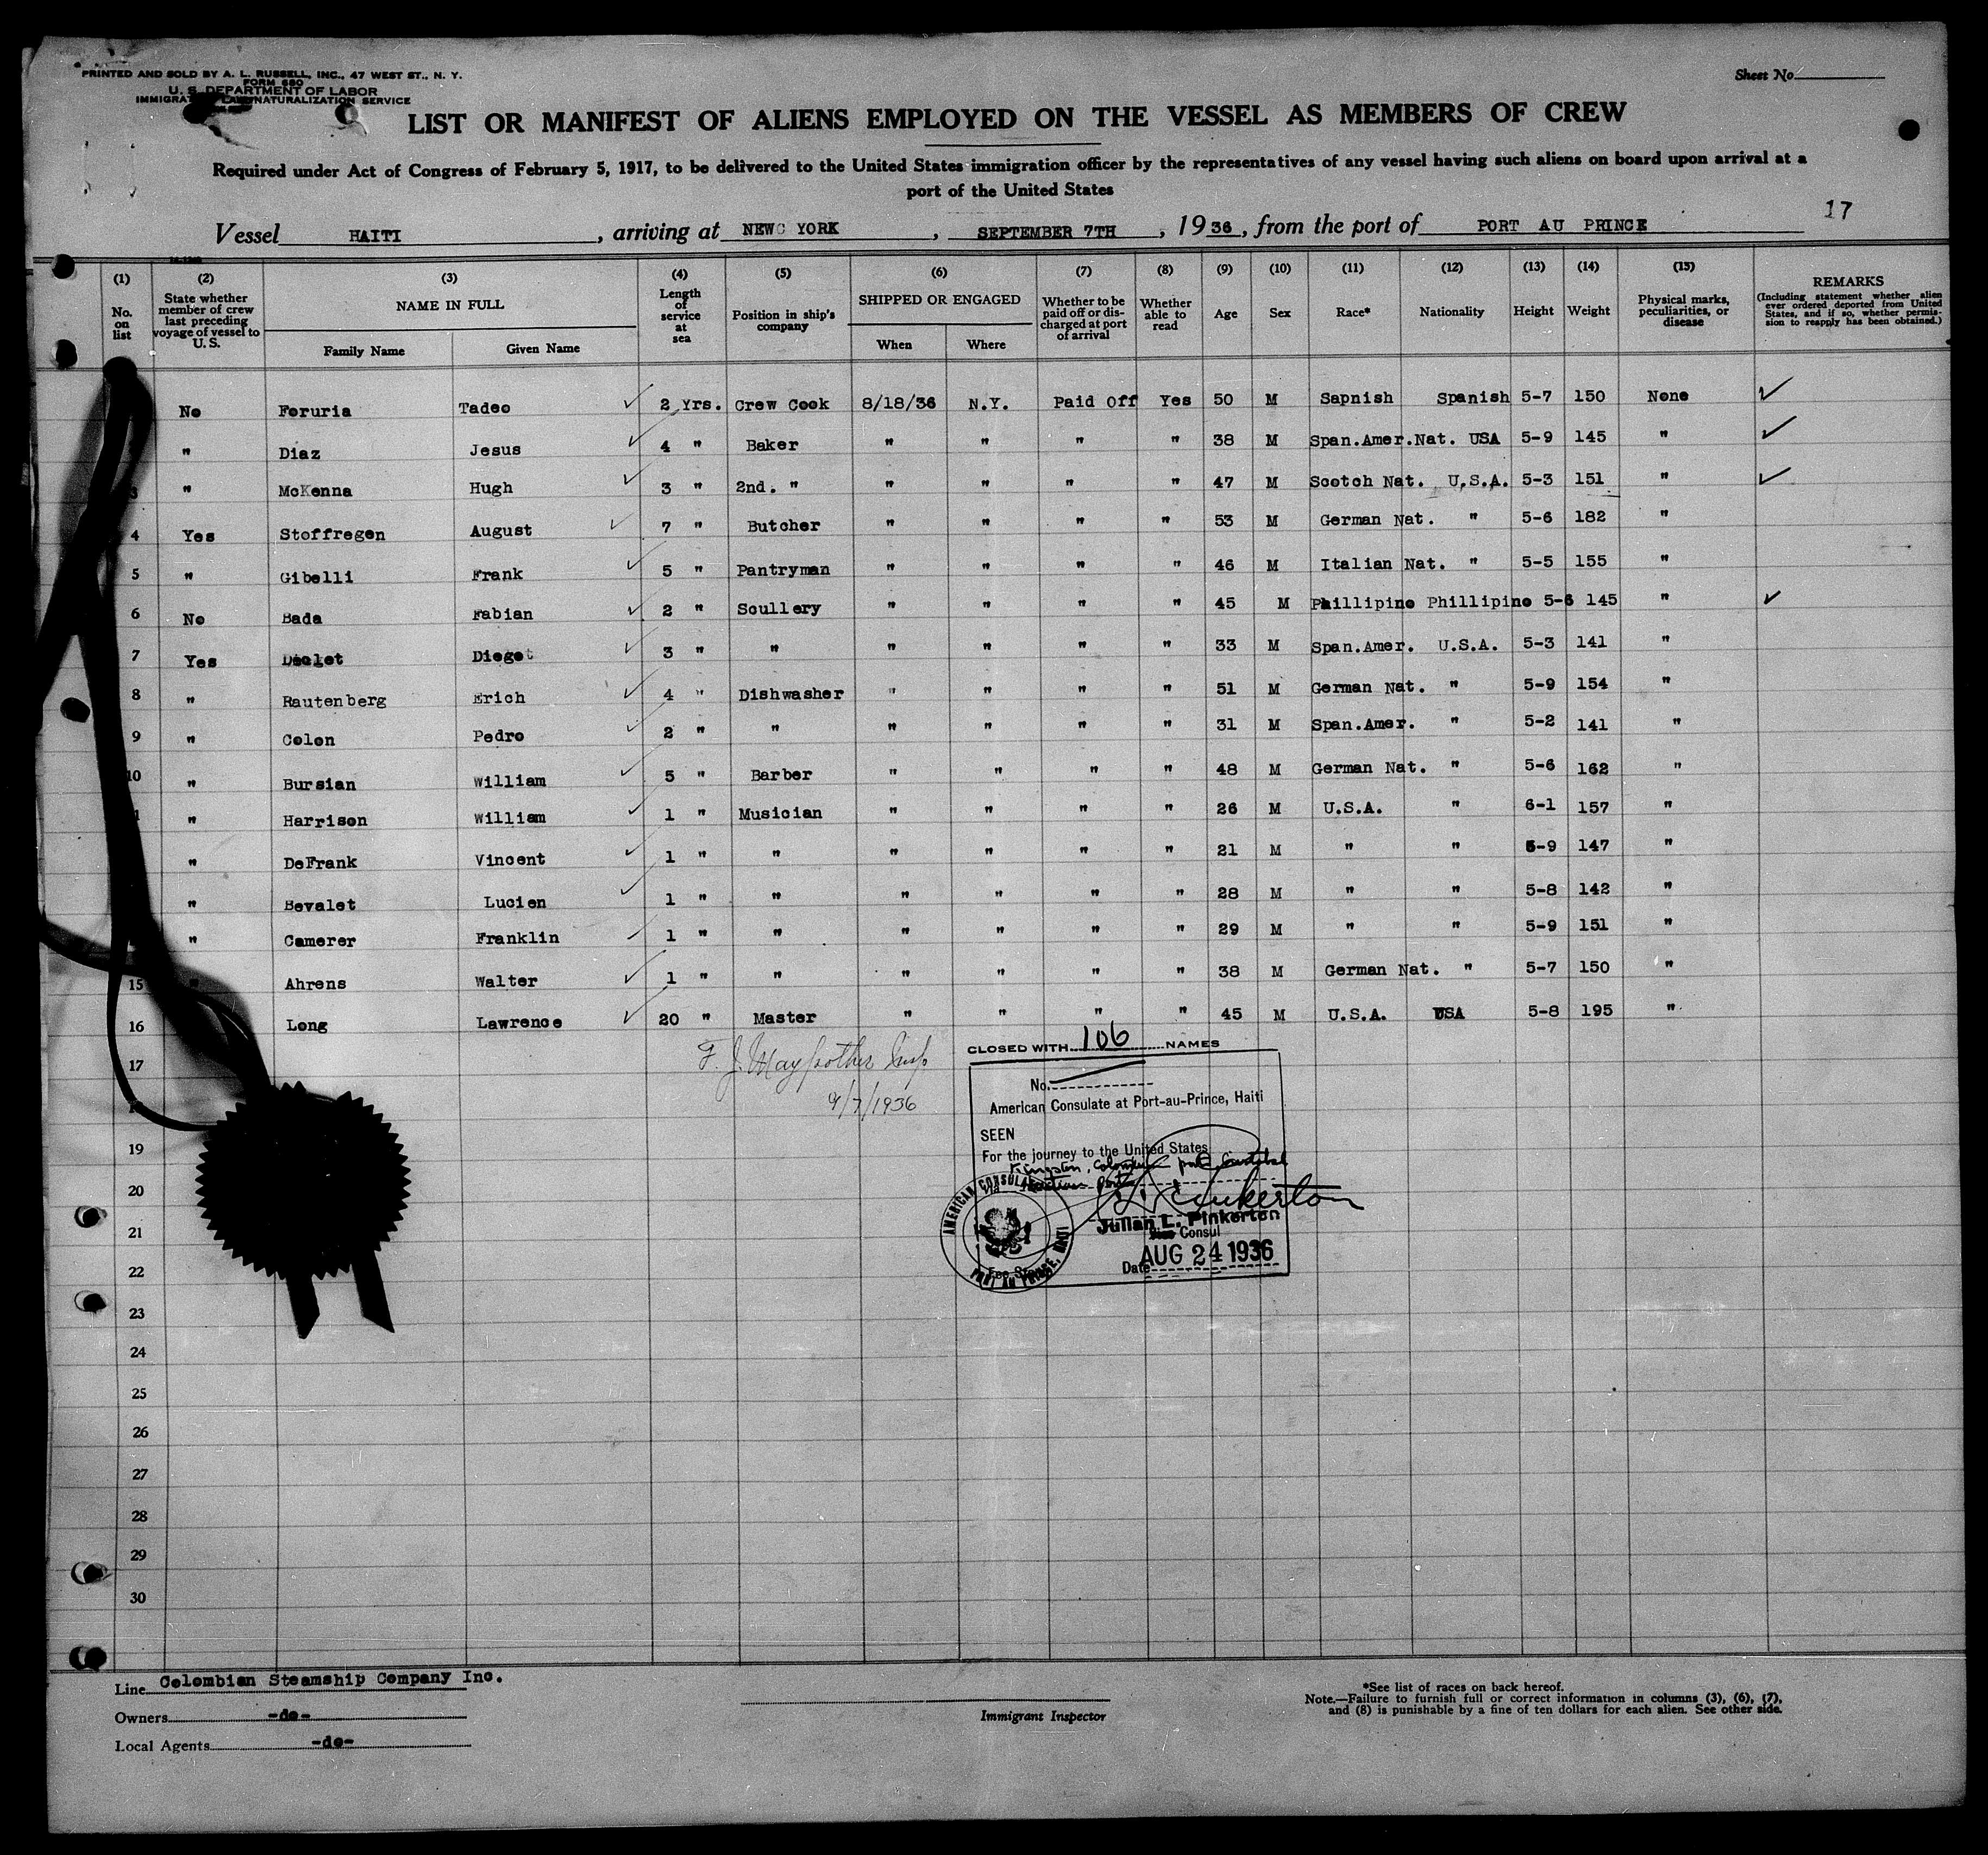 PRINTED AND SOLD BY A. L. RUSSELL, INC., 47 WEST ST., N. Y.
FORM 680
U. S. DEPARTMENT OF LABOR
IMMIGRATION AND NATURALIZATION SERVICE
Sheet No.
LIST OR MANIFEST OF ALIENS EMPLOYED ON THE VESSEL AS MEMBERS OF CREW
Required under Act of Congress of February 5, 1917, to be delivered to the United States immigration officer by the representatives of any vessel having such aliens on board upon arrival at a
port of the United States
17
Vessel HAITI, arriving at NEW YORK, SEPTEMBER 7TH, 1936, from the port of PORT AU PRINCE
(1) No. on list (2) State whether member of crew last preceding voyage of vessel to U. S. (3) NAME IN FULL Family Name Given Name (4) Length of service at sea (5) Position in ship's company (6) SHIPPED OR ENGAGED When Where (7) Whether to be paid off or discharged at port of arrival (8) Whether able to read (9) Age (10) Sex (11) Race* (12) Nationality (13) Height (14) Weight (15) Physical marks, peculiarities, or disease REMARKS (Including statement whether alien ever ordered deported from United States, and if so, whether permission to reapply has been obtained.)
No Foruria Tadeo ✓ 2 Yrs. Crew Cook 8/18/36 N.Y. Paid Off Yes 50 M Sapnish Spanish 5-7 150 None ✓
" Diaz Jesus ✓ 4 " Baker " " " " 38 M Span.Amer.Nat. USA 5-9 145 " ✓
3 " McKenna Hugh ✓ 3 " 2nd. " " " " " 47 M Scotch Nat. U.S.A. 5-3 151 " ✓
4 Yes Stoffregen August ✓ 7 " Butcher " " " " 53 M German Nat. " 5-6 182 "
5 " Gibelli Frank ✓ 5 " Pantryman " " " " 46 M Italian Nat. " 5-5 155 "
6 No Bada Fabian ✓ 2 " Scullery " " " " 45 M Phillipino Phillipino 5-6 145 " ✓
7 Yes Diclet Dieget ✓ 3 " " " " " " 33 M Span.Amer. U.S.A. 5-3 141 "
8 " Rautenberg Erich ✓ 4 " Dishwasher " " " " 51 M German Nat. " 5-9 154 "
9 " Colon Pedro ✓ 2 " " " " " " 31 M Span.Amer. " 5-2 141 "
10 " Bursian William ✓ 5 " Barber " " " " 48 M German Nat. " 5-6 162 "
1 " Harrison William ✓ 1 " Musician " " " " 26 M U.S.A. " 6-1 157 "
" DeFrank Vincent ✓ 1 " " " " " " 21 M " " 5-9 147 "
" Bevalet Lucien ✓ 1 " " " " " " 28 M " " 5-8 142 "
" Camerer Franklin ✓ 1 " " " " " " 29 M " " 5-9 151 "
15 " Ahrens Walter ✓ 1 " " " " " " 38 M German Nat. " 5-7 150 "
16 Long Lawrence ✓ 20 " Master " " " " 45 M U.S.A. USA 5-8 195 "
17
19
20
21
22
23
24
25
26
27
28
29
30
F. J. Maypother Insp
9/7/1936
CLOSED WITH 106 NAMES
No.
American Consulate at Port-au-Prince, Haiti
SEEN
For the journey to the United States
Kingston, Colombian
Haitian ports
Julian L. Pinkerton
Vice Consul
Date AUG 24 1936
AMERICAN CONSULATE
PORT AU PRINCE, HAITI
Line Colombian Steamship Company Inc.
Owners -do-
Local Agents -do-
Immigrant Inspector
*See list of races on back hereof.
Note.—Failure to furnish full or correct information in columns (3), (6), (7),
and (8) is punishable by a fine of ten dollars for each alien. See other side.